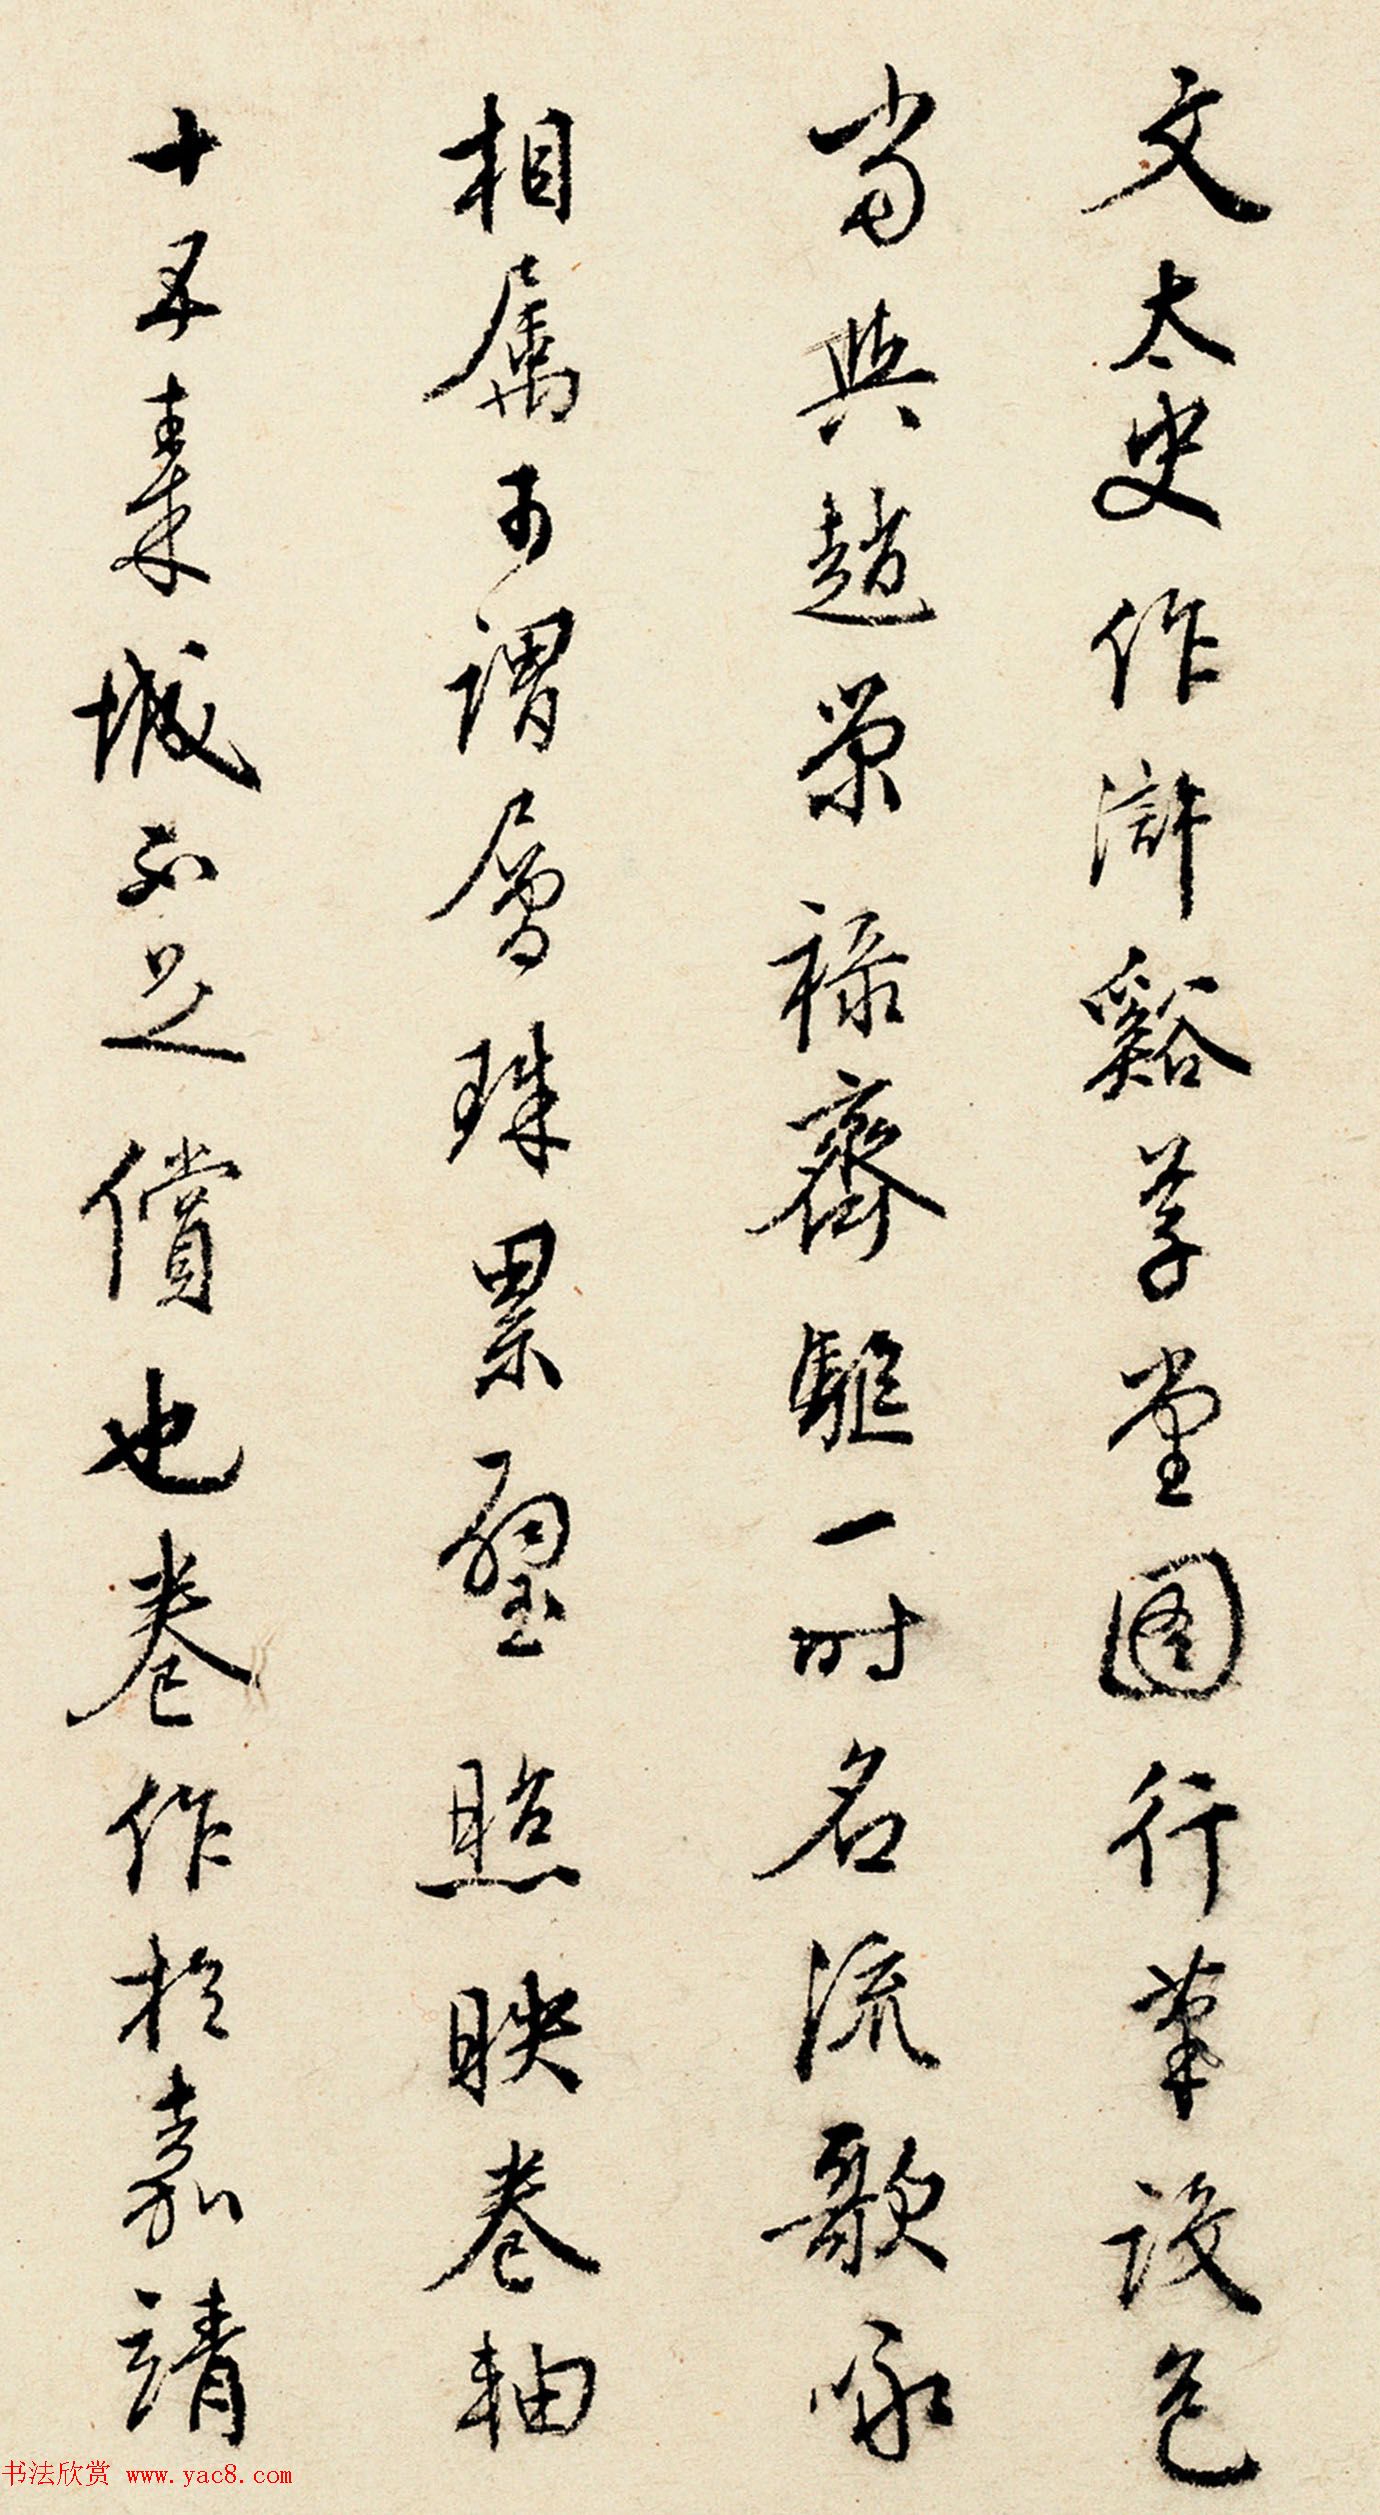 文太史作滸谿草堂圖行筆設色
當與趙榮祿齊驅一时名流歌咏
相屬可謂層珠累璧照映卷軸
十五連城不足償也卷作於嘉靖
书法欣赏 www.yac8.com